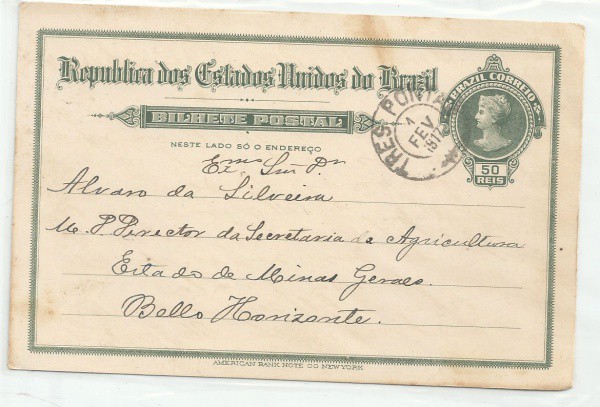 Republica dos Estados Unidos do Brazil
BILHETE POSTAL
NESTE LADO SÓ O ENDEREÇO
BRAZIL CORREIO
50
REIS
TRES PONTAS
1
FEV
Exmo Snr Dr
Alvaro da Silveira
M. D. Director da Secretaria de Agricultura
Estado de Minas Geraes.
Bello Horizonte.
AMERICAN BANK NOTE CO NEW YORK